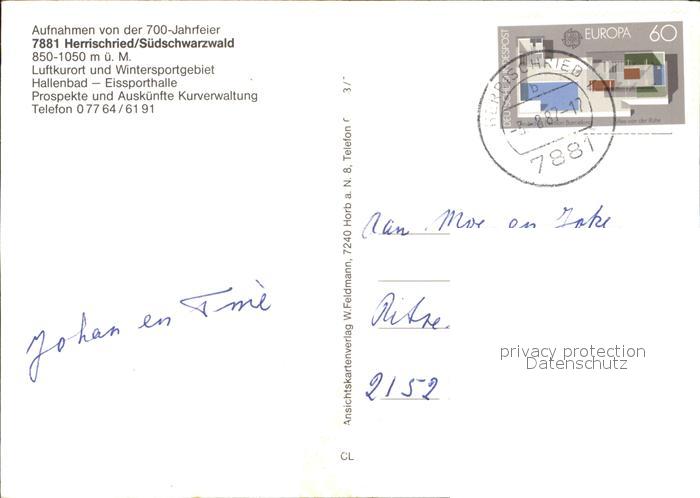 Aufnahmen von der 700-Jahrfeier
7881 Herrischried/Südschwarzwald
850-1050 m ü. M.
Luftkurort und Wintersportgebiet
Hallenbad – Eissporthalle
Prospekte und Auskünfte Kurverwaltung
Telefon 0 77 64 / 61 91
DEUTSCHE BUNDESPOST
EUROPA 60
HERRISCHRIED
b
-3.-8.87-17
7881
Ansichtskartenverlag W. Feldmann, 7240 Horb a. N. 8, Telefon
Johan en
2152
privacy protection
Datenschutz
CL